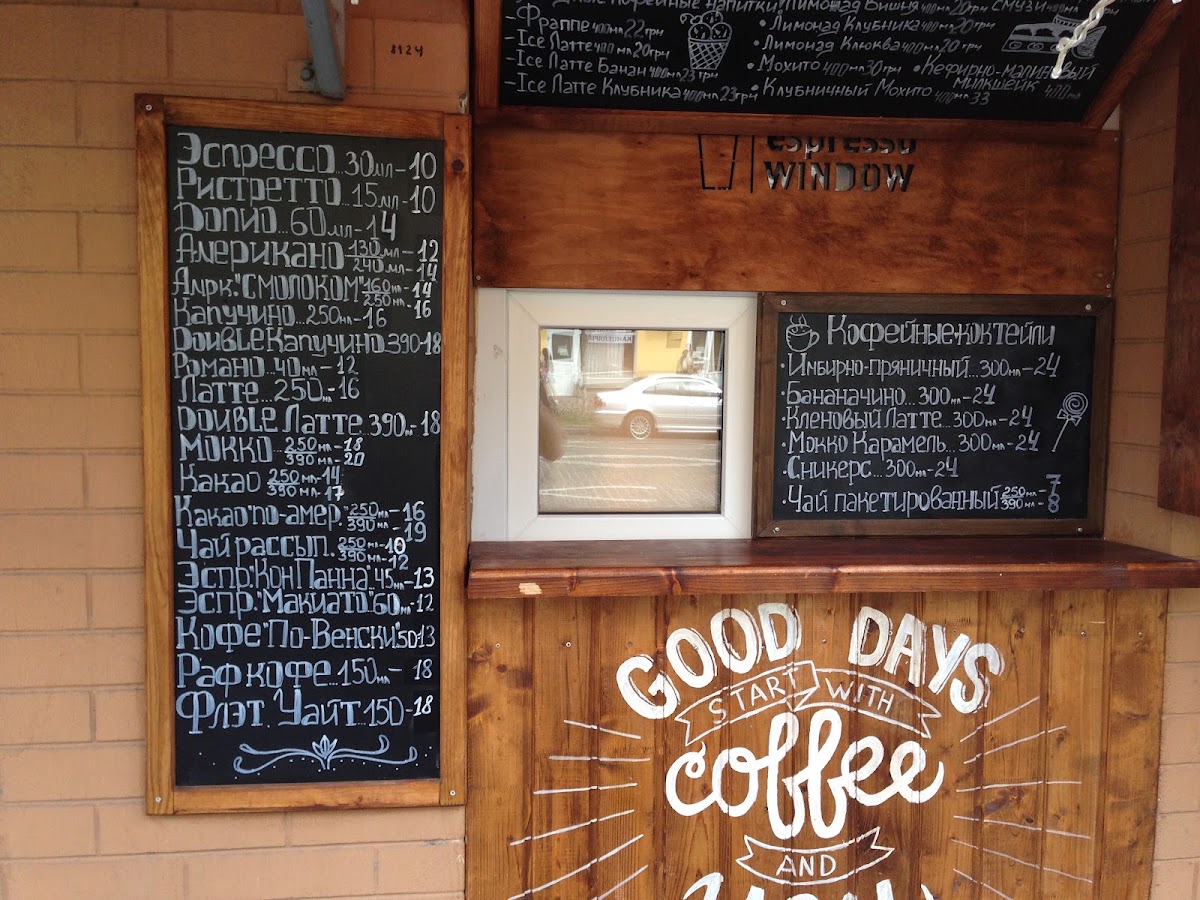 8124
Эспрессо...30мл-10
Ристретто...15мл-10
Допио...60мл-14
Американо 130мл-12
240мл-14
Амрк."СМОЛОКОМ" 160мл-14
250мл-16
Капучино...250мл-16
Double Капучино...390-18
Романо...40мл-12
Латте...250мл-16
Double Латте...390мл-18
Мокко...250мл-18
390мл-20
Какао 250мл-14
390мл-17
Какао"по-амер." 250мл-16
390мл-19
Чай рассып. 250мл-10
390мл-12
Эспр."Кон Панна"...45мл-13
Эспр."Макиато"60мл-12
Кофе"По-Венски"15013
Раф кофе...150мл-18
Флэт. Уайт...150-18
кофейные напитки
-Фраппе 400мл 22грн
-Ice Латте 400мл 20грн
-Ice Латте Банан 400мл 23грн
-Ice Латте Клубника 400мл 23грн
Лимонад Вишня 400мл 20грн
•Лимонад Клубника 400мл 20грн
•Лимонад Клюква 400мл 20грн
•Мохито 400мл 30грн
•Клубничный Мохито 400мл 33
смузи
•Кефирно-малиновый
милкшейк 400мл
espresso
WINDOW
Кофейные коктейли
•Имбирно-пряничный...300мл-24
•Бананачино...300мл-24
•Кленовый Латте...300мл-24
•Мокко Карамель...300мл-24
•Сникерс...300мл-24
•Чай пакетированный 250мл-7
390мл-8
GOOD DAYS
START WITH
coffee
AND